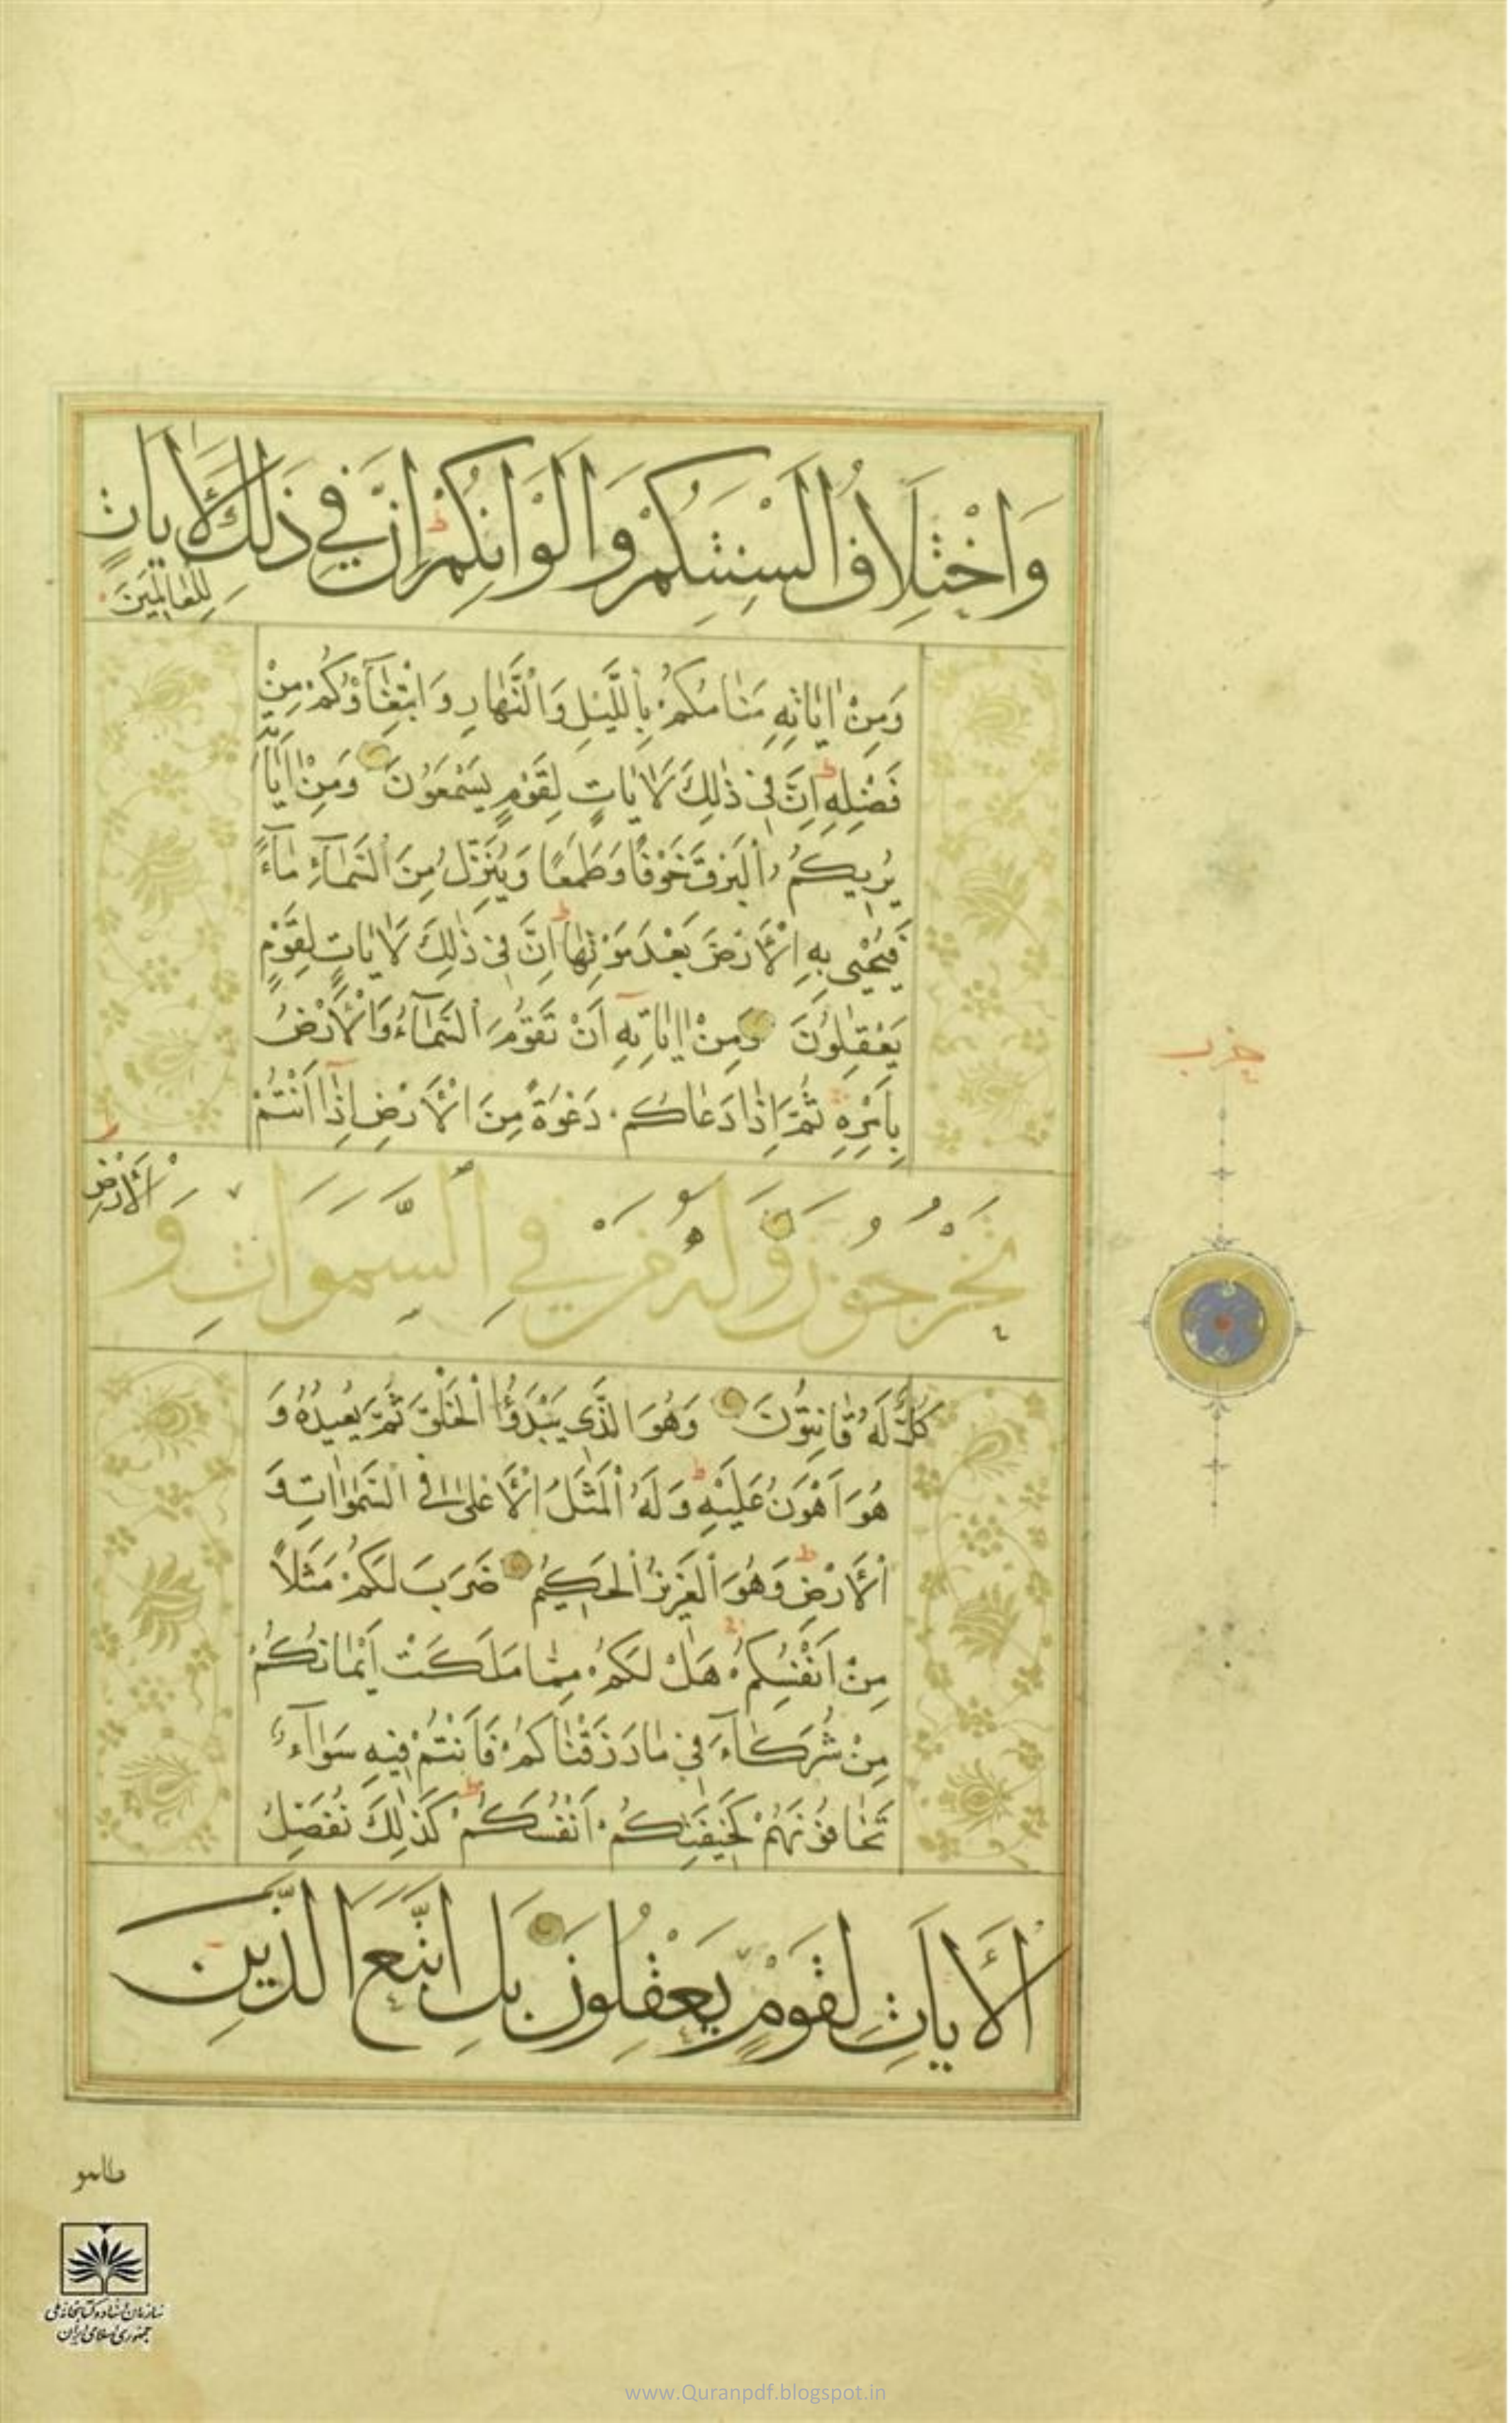 وَاخْتِلَافُ اَلْسِنَتِكُمْ وَاَلْوَانِكُمْ ط اِنَّ فِي ذٰلِكَ لَاٰيَاتٍ
لِلْعَالِمِينَ
وَمِنْ اٰيَاتِهِ مَنَامُكُمْ بِاللَّيْلِ وَالنَّهَارِ وَابْتِغَاؤُكُمْ مِنْ
فَضْلِهِ ط اِنَّ فِي ذٰلِكَ لَاٰيَاتٍ لِقَوْمٍ يَسْمَعُونَ وَمِنْ اٰيَاتِهِ
يُرِيكُمُ الْبَرْقَ خَوْفًا وَطَمَعًا وَيُنَزِّلُ مِنَ السَّمَآءِ مَآءً
فَيُحْيِي بِهِ الْاَرْضَ بَعْدَ مَوْتِهَا ط اِنَّ فِي ذٰلِكَ لَاٰيَاتٍ لِقَوْمٍ
يَعْقِلُونَ وَمِنْ اٰيَاتِهِ اَنْ تَقُومَ السَّمَآءُ وَالْاَرْضُ
بِاَمْرِهِ ثُمَّ اِذَا دَعَاكُمْ دَعْوَةً مِنَ الْاَرْضِ اِذَا اَنْتُمْ
تَخْرُجُونَ وَلَهُ مَنْ فِي السَّمَوَاتِ وَ
الْاَرْضِ
كُلٌّ لَهُ قَانِتُونَ وَهُوَ الَّذِي يَبْدَؤُا الْخَلْقَ ثُمَّ يُعِيدُهُ وَ
هُوَ اَهْوَنُ عَلَيْهِ ط وَلَهُ الْمَثَلُ الْاَعْلٰى فِي السَّمٰوَاتِ وَ
الْاَرْضِ ط وَهُوَ الْعَزِيزُ الْحَكِيمُ ضَرَبَ لَكُمْ مَثَلًا
مِنْ اَنْفُسِكُمْ هَلْ لَكُمْ مِمَّا مَلَكَتْ اَيْمَانُكُمْ
مِنْ شُرَكَآءَ فِي مَا رَزَقْنَاكُمْ فَاَنْتُمْ فِيهِ سَوَآءٌ
تَخَافُونَهُمْ كَخِيفَتِكُمْ اَنْفُسَكُمْ ط كَذٰلِكَ نُفَصِّلُ
الْاٰيَاتِ لِقَوْمٍ يَعْقِلُونَ بَلِ اتَّبَعَ الَّذِينَ
حزب
ظلموا
سازمان اسناد و کتابخانه ملی
جمهوری اسلامی ایران
www.Quranpdf.blogspot.in